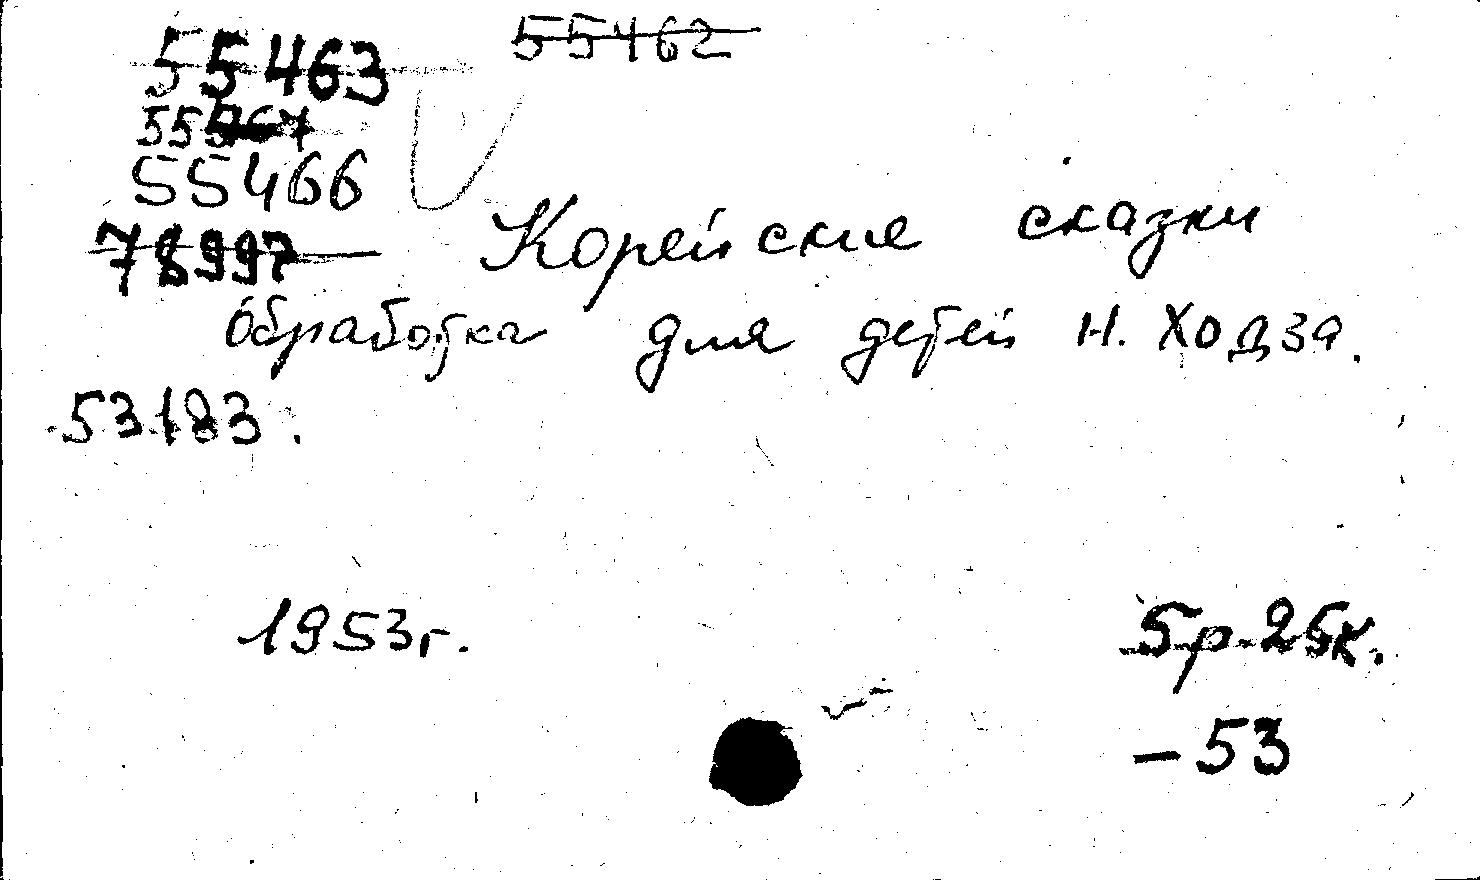 55463 55462
55466
78997 Корейские сказки
обработка для детей Н. Ходза.
53183.
1953г.
5р-25к.
-53